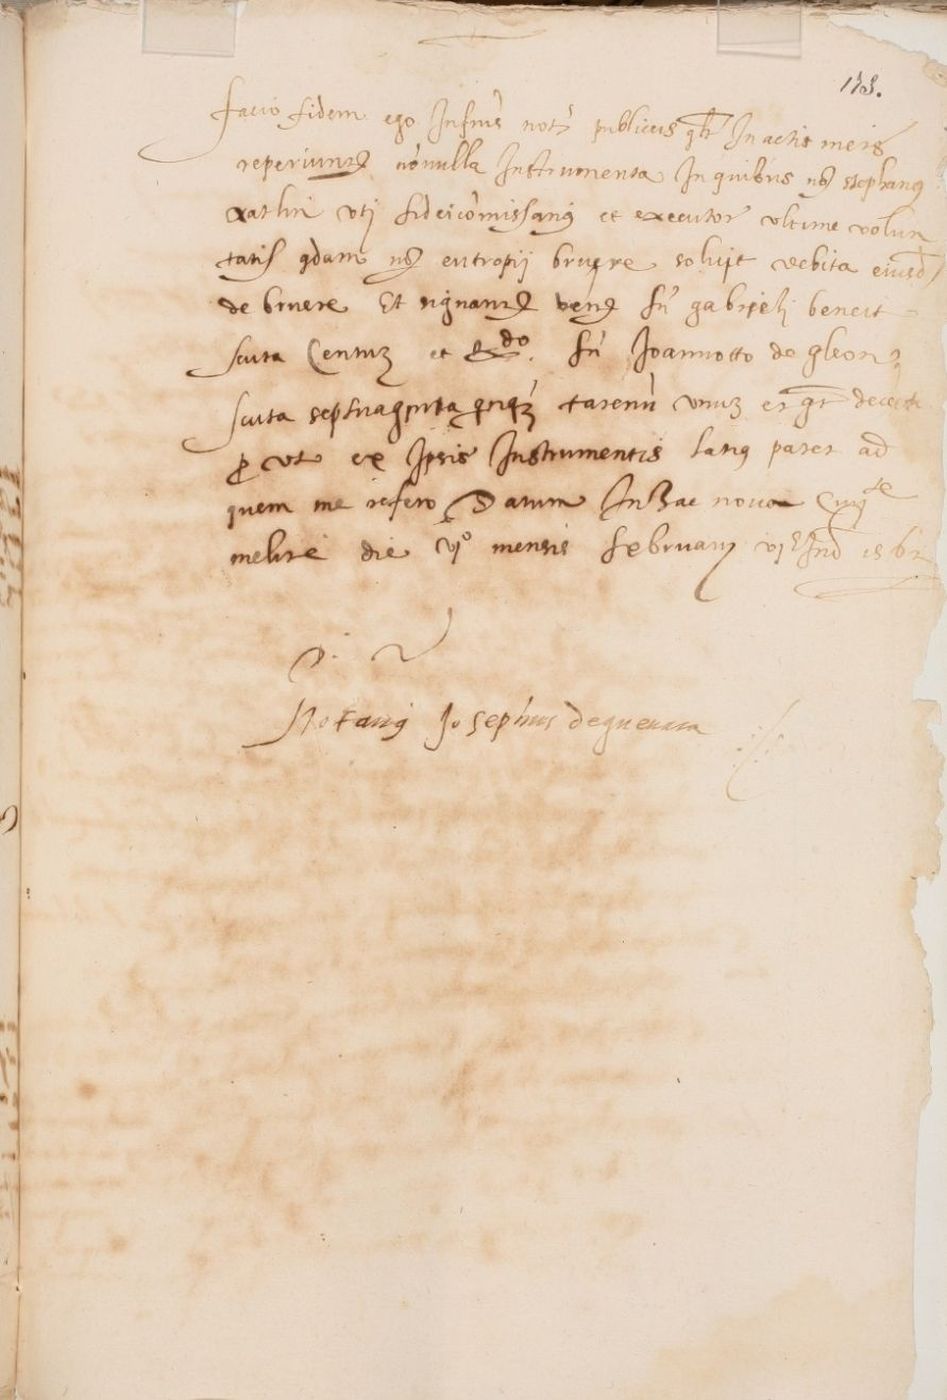 173.
facio fidem ego Infrus notus publicus qltr In actis meis
reperiuntur nonnulla Instrumenta In quibus nob stephanus
xathri utj fideicomissarius et executor ultime volun
tatis qdam nob eutropij bruere soluit debita eiusd
de bruere Et signanter venl fri gabrieli beneit
scuta Centuz et Rdo. fri Joannotto de gleon
scuta septuaginta tarenu unuz et gr decec
pro ut ex Ipsis Instrumentis latius patet ad
quem me refero Datum In Bac noua Ciuite
melite die vjo mensis februarij vj Ind 15
Notarius Josephus deguevara